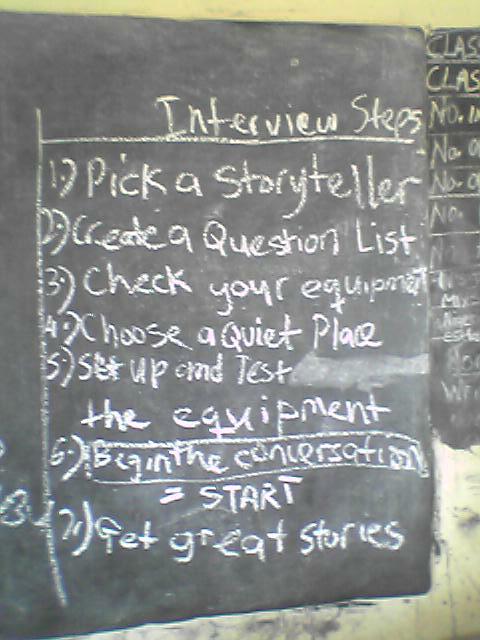 Interview Steps
1.) Pick a Storyteller
2.) Create a Question List
3.) Check your equipment
4.) Choose a Quiet Place
5.) Set Up and Test
the equipment
6.) Begin the conversation
= START
7.) Get great stories
CLAS
CLAS
No. 
No. 
No. 
No.